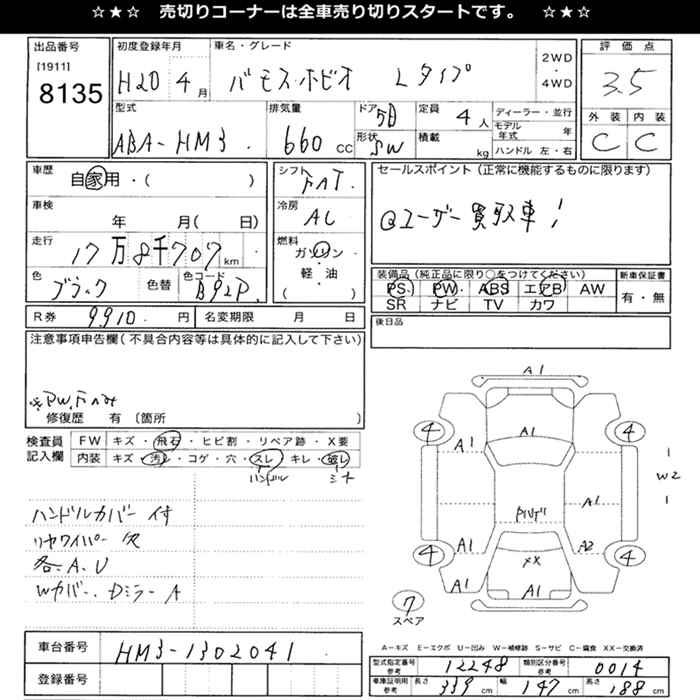 ☆★☆ 売切りコーナーは全車売り切りスタートです。 ☆★☆
出品番号
[1911]
8135
初度登録年月
H20 4月
車名・グレード
バモスホビオ Lタイプ
2WD
・
4WD
評価点
3.5
外装 内装
C C
型式
ABA-HM3
排気量
660 cc
ドア 5D
形状 SW
定員 4人
積載 kg
ディーラー・並行
モデル年式 年
ハンドル 左・右
車歴
自家用・( )
シフト
FAT
セールスポイント (正常に機能するものに限ります)
@ユーザー買取車!
車検
年 月( 日)
冷房
AC
走行
17万8千707km
燃料
ガソリン
軽・油
( )
色
ブラック
色替
色コード
B92P
装備品 (純正品に限り○をつけてください)
PS PW ABS エアB AW
SR ナビ TV カワ
新車保証書
有・無
R券 9910円
名変期限 月 日
後日品
注意事項申告欄 (不具合内容等は具体的に記入して下さい)
※PW.Fのみ
修復歴 有 〔箇所 〕
検査員
記入欄
FW キズ・飛石・ヒビ割・リペア跡・X要
内装 キズ・汚レ・コゲ・穴・スレ・キレ・破レ
ハンドル シート
ハンドルカバー付
リヤワイパー欠
各.A.U
Wカバー.Dミラー A
A1
4 4
A1 A1
W2
A1
A1 A2
4 4
XX
A1 A1
7
スペア
A-キズ E-エクボ U-凹み W-補修跡 S-サビ C-腐食 XX-交換済
車台番号 HM3-1302041
登録番号
型式指定番号 参考 12248
類別区分番号 参考 0014
車庫証明用 参考 長さ 339cm 幅 147cm 高さ 188cm